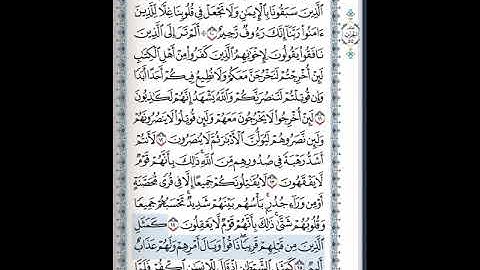 الَّذِينَ سَبَقُونَا بِالْإِيمَٰنِ وَلَا تَجْعَلْ فِي قُلُوبِنَا غِلًّا لِّلَّذِينَ
ءَامَنُوا رَبَّنَا إِنَّكَ رَءُوفٌ رَّحِيمٌ ۝١٠ أَلَمْ تَرَ إِلَى الَّذِينَ
نَافَقُوا يَقُولُونَ لِإِخْوَٰنِهِمُ الَّذِينَ كَفَرُوا مِنْ أَهْلِ الْكِتَٰبِ
لَئِنْ أُخْرِجْتُمْ لَنَخْرُجَنَّ مَعَكُمْ وَلَا نُطِيعُ فِيكُمْ أَحَدًا أَبَدًا
وَإِن قُوتِلْتُمْ لَنَنصُرَنَّكُمْ وَاللَّهُ يَشْهَدُ إِنَّهُمْ لَكَٰذِبُونَ
۝١١ لَئِنْ أُخْرِجُوا لَا يَخْرُجُونَ مَعَهُمْ وَلَئِن قُوتِلُوا لَا يَنصُرُونَهُمْ
وَلَئِن نَّصَرُوهُمْ لَيُوَلُّنَّ الْأَدْبَٰرَ ثُمَّ لَا يُنصَرُونَ ۝١٢ لَأَنتُمْ
أَشَدُّ رَهْبَةً فِي صُدُورِهِم مِّنَ اللَّهِ ذَٰلِكَ بِأَنَّهُمْ قَوْمٌ
لَّا يَفْقَهُونَ ۝١٣ لَا يُقَٰتِلُونَكُمْ جَمِيعًا إِلَّا فِي قُرًى مُّحَصَّنَةٍ
أَوْ مِن وَرَاءِ جُدُرٍ بَأْسُهُم بَيْنَهُمْ شَدِيدٌ تَحْسَبُهُمْ جَمِيعًا
وَقُلُوبُهُمْ شَتَّىٰ ذَٰلِكَ بِأَنَّهُمْ قَوْمٌ لَّا يَعْقِلُونَ ۝١٤ كَمَثَلِ
الَّذِينَ مِن قَبْلِهِمْ قَرِيبًا ذَاقُوا وَبَالَ أَمْرِهِمْ وَلَهُمْ عَذَابٌ
أَلِيمٌ ۝١٥ كَمَثَلِ الشَّيْطَٰنِ إِذْ قَالَ لِلْإِنسَٰنِ اكْفُرْ فَلَمَّا